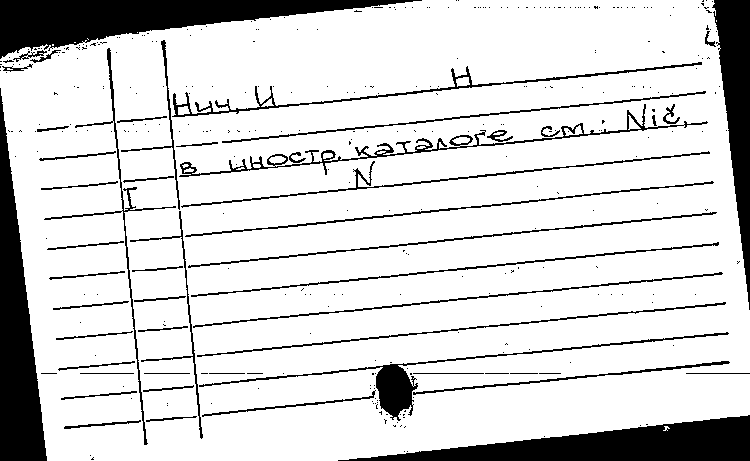 Нич, И Н
в иностр. каталоге см.: Nič,
N
I